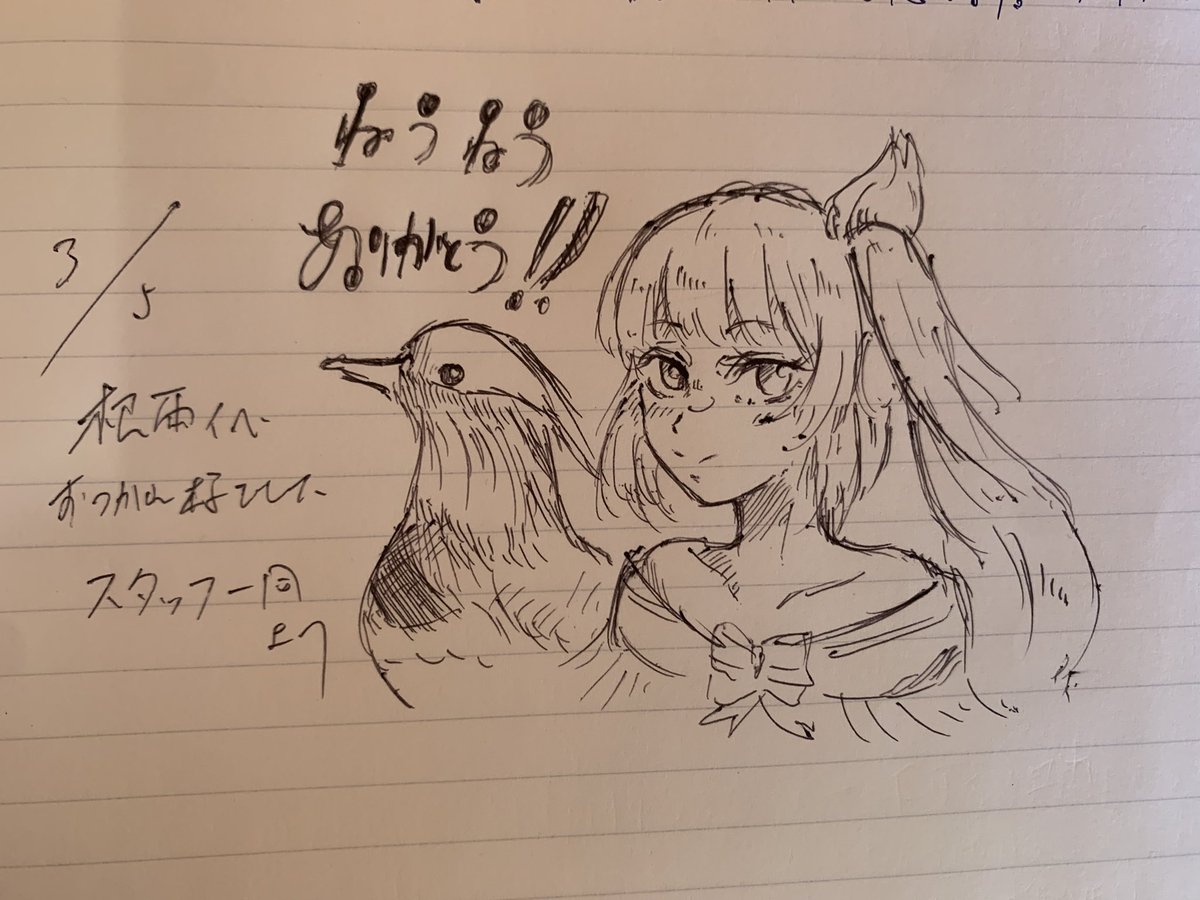 ねうねう
ありがとう!!
3/5
根雨へ
おつかれ様でした
スタッフ一同
より